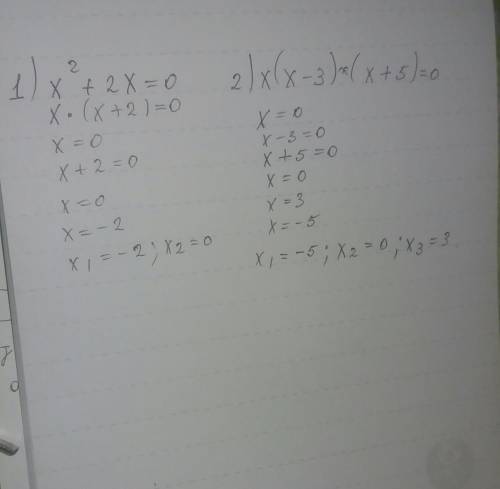 1) x² + 2x = 0
x · (x + 2) = 0
x = 0
x + 2 = 0
x = 0
x = -2
x₁ = -2 ; x₂ = 0
2) x(x-3)*(x+5)=0
x = 0
x-3=0
x+5=0
x = 0
x = 3
x = -5
x₁ = -5 ; x₂ = 0 ; x₃ = 3